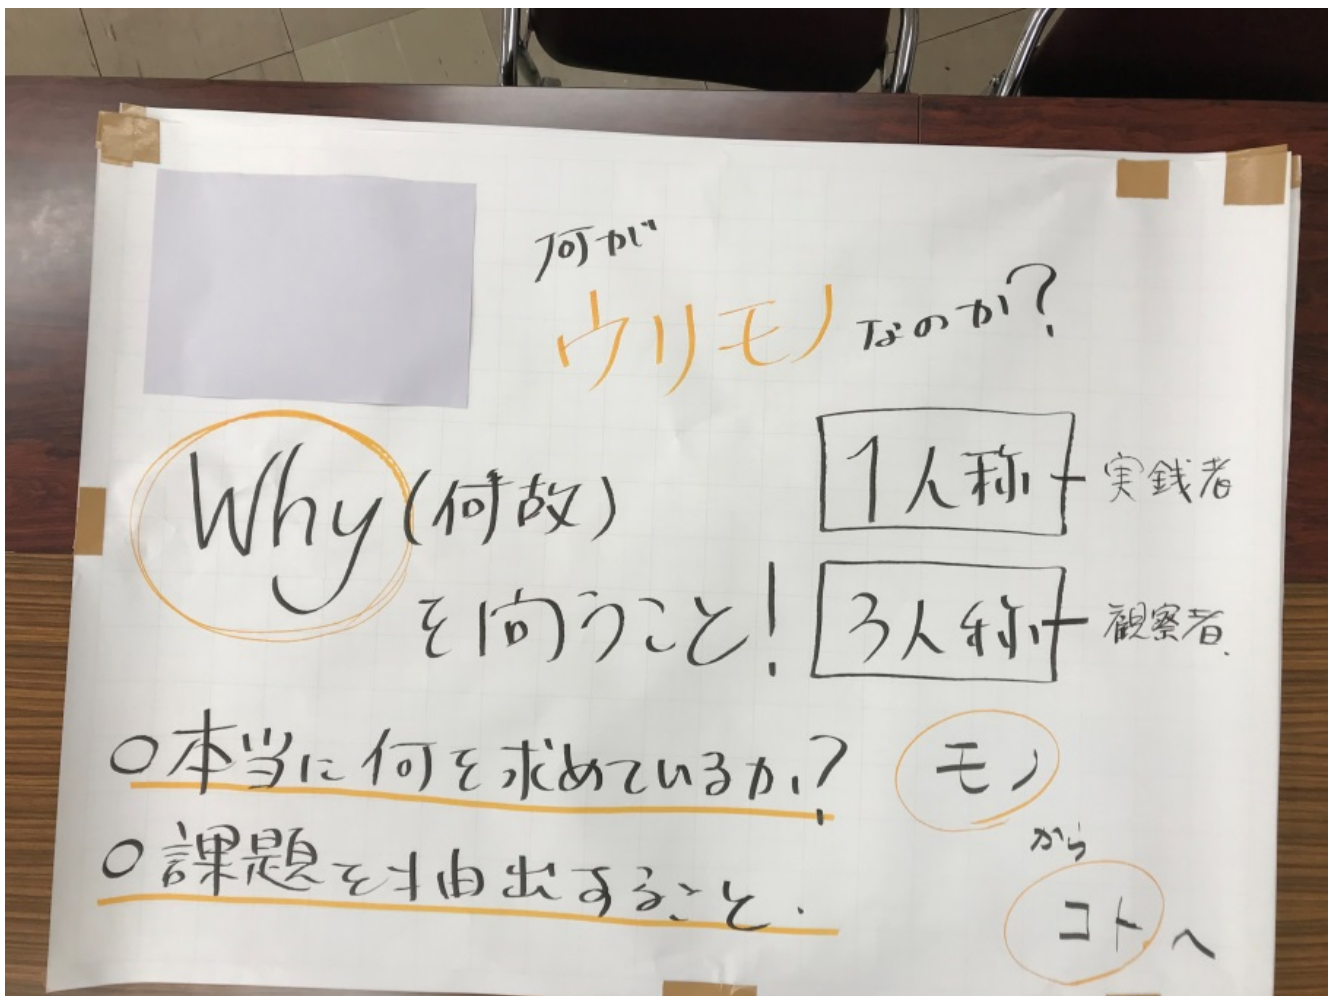 何が
ウリモノなのか?
Why(何故)
を問うこと!
1人称 実践者
3人称 観察者.
○本当に何を求めているか?
○課題を抽出すること.
モノ
から
コトへ